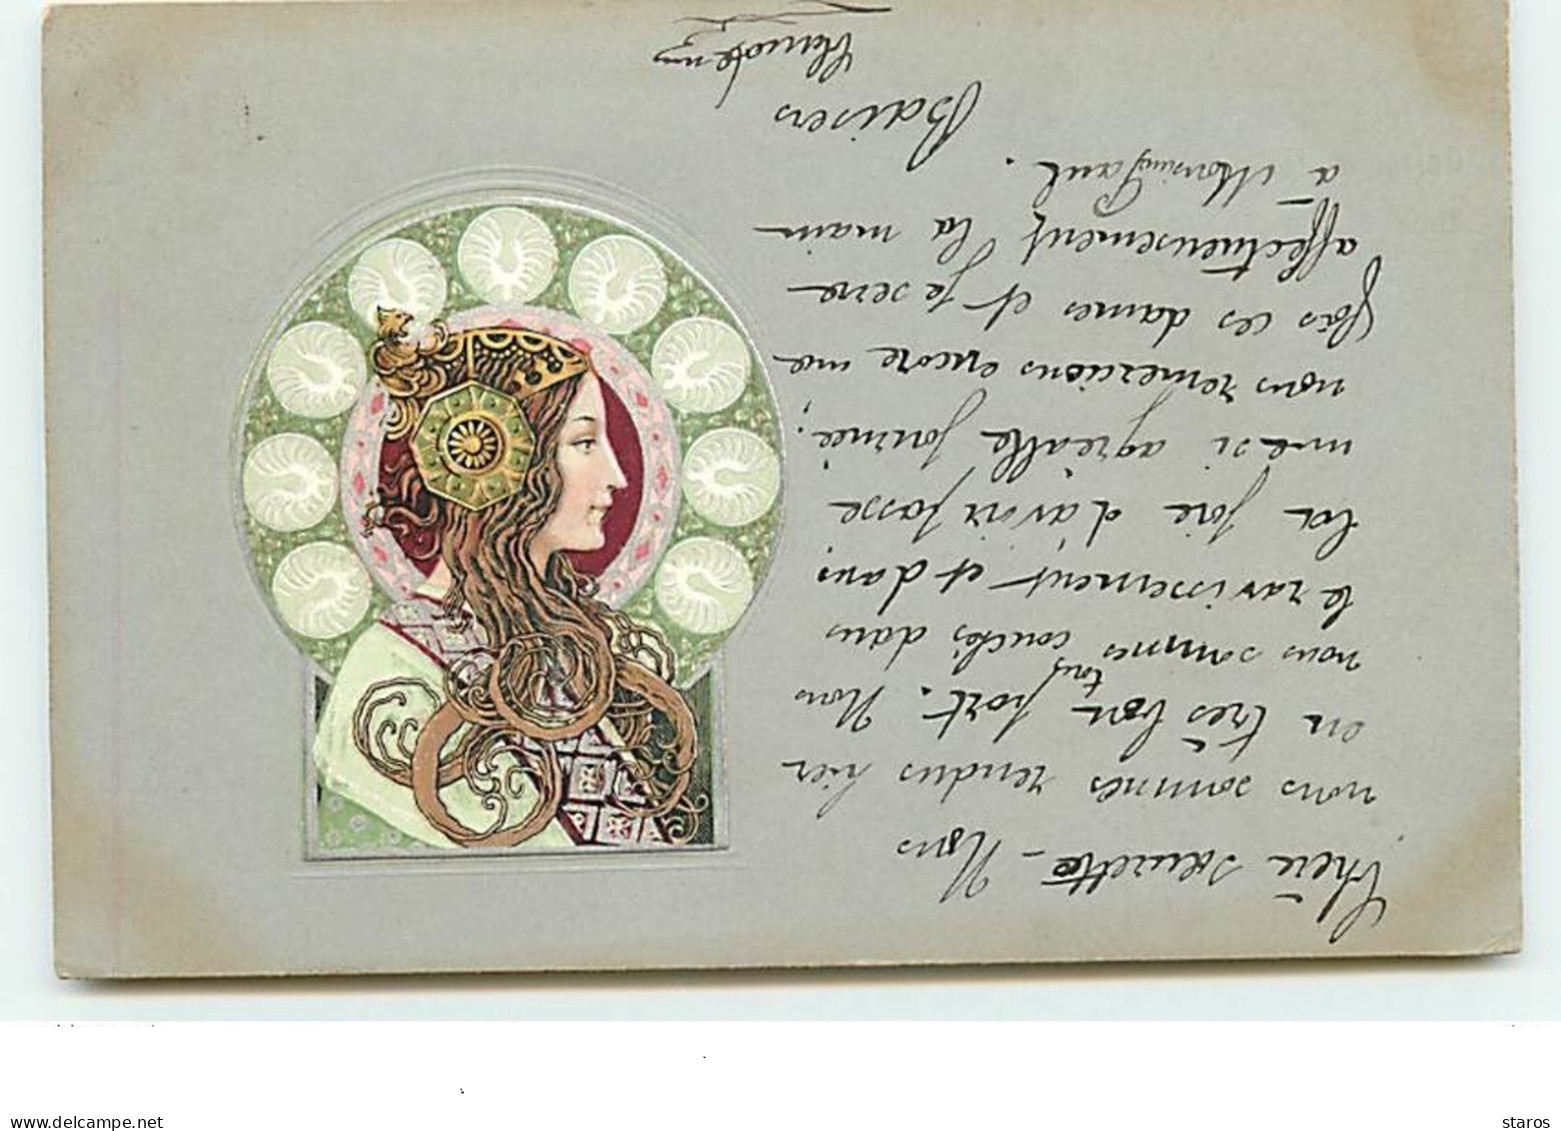 Chère sœurette – Nous
nous sommes rendus hier
en très bon port. Nous
nous sommes tous couchés dans
le ravissement et dans
la joie d'avoir passé
une si agréable journée.
nous remercions encore une
fois ces dames et je serre
affectueusement la main
à Monsieur Paul.
Baisers
www.delcampe.net
staros